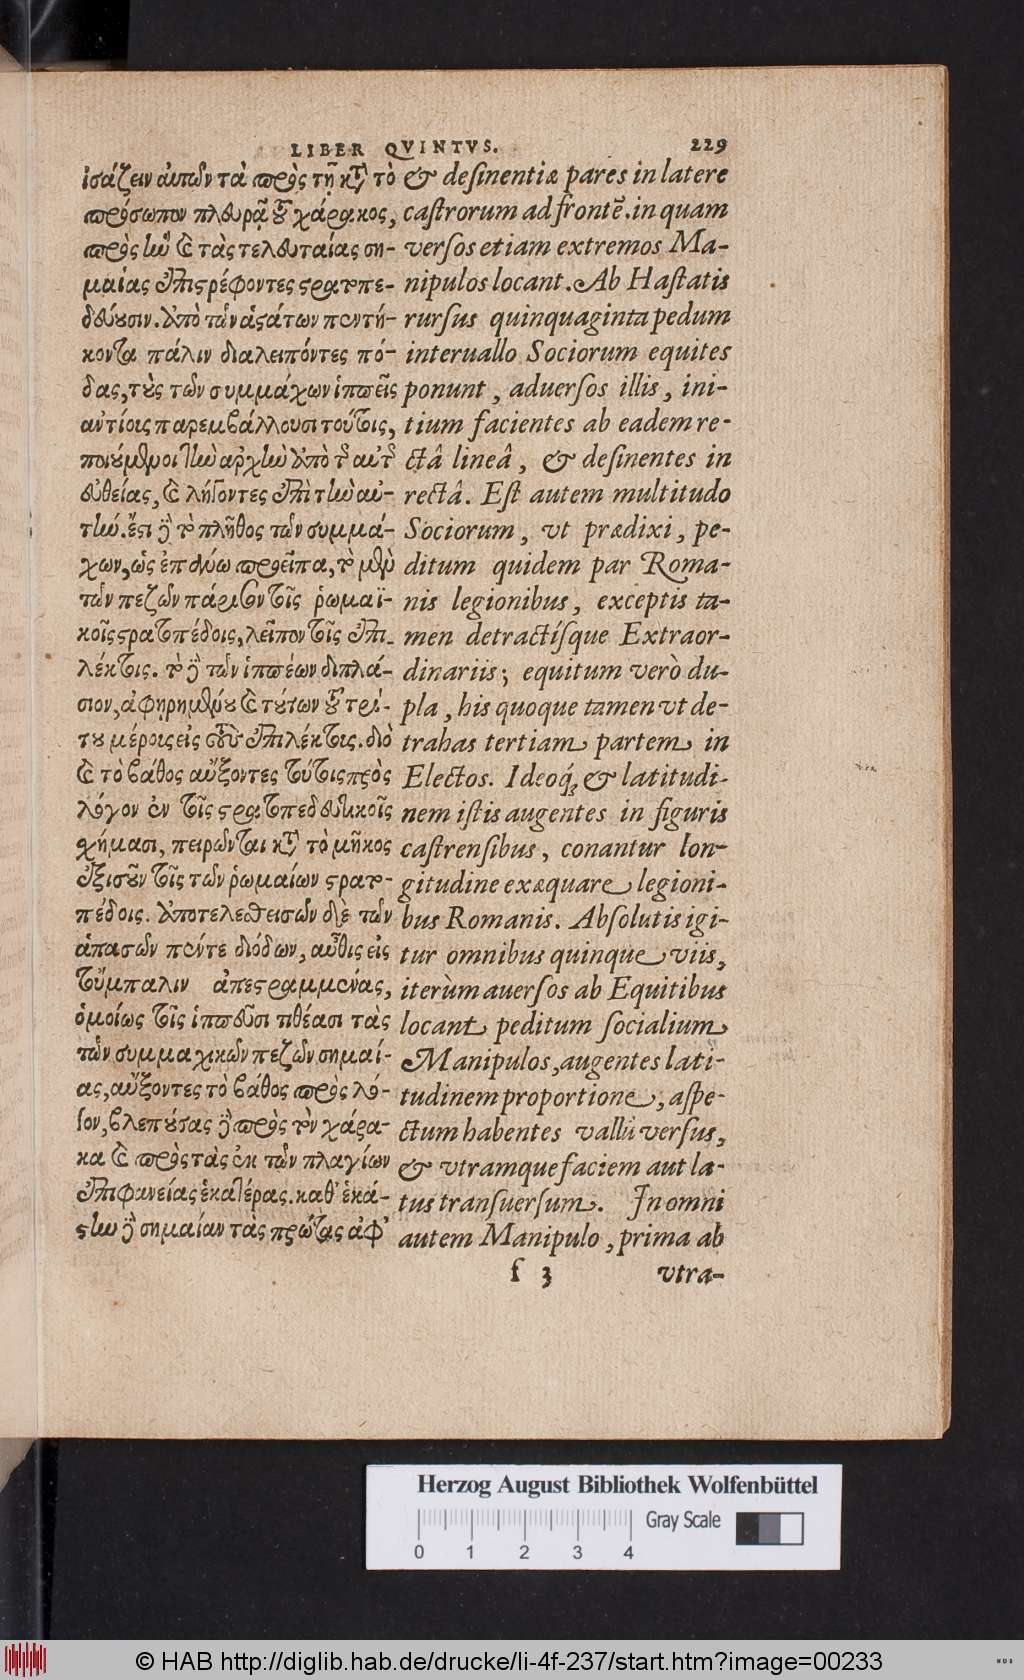 LIBER QVINTVS. 229
ἰσάζειν αὐτῶν τὰ πρὸς τῇ κατὰ τὸ
πρόσωπον πλευρᾷ τοῦ χάρακος,
πρὸς ἣν καὶ τὰς τελευταίας ση-
μαίας ἐπιστρέφοντες στρατοπε-
δεύουσιν. ἀπὸ τῶν ἁστάτων πεντή-
κοντα πάλιν διαλειπόντες πό-
δας, τοὺς τῶν συμμάχων ἱππεῖς
ἀντίοις παρεμβάλλουσι τούτοις,
ποιούμενοι τὴν ἀρχὴν ἀπὸ τῆς αὐτῆς
εὐθείας, καὶ λήγοντες ἐπὶ τὴν αὐ-
τήν. ἔστι δὲ τὸ πλῆθος τῶν συμμά-
χων, ὡς ἐπάνω προεῖπα, τὸ μὲν
τῶν πεζῶν πάρισον τοῖς ῥωμαϊ-
κοῖς στρατοπέδοις, λεῖπον τοῖς ἐπι-
λέκτοις. τὸ δὲ τῶν ἱππέων διπλά-
σιον, ἀφῃρημένου καὶ τούτων τοῦ τρί-
του μέροις εἰς τοὺς ἐπιλέκτοις. διὸ
καὶ τὸ βάθος αὔξοντες τούτοις πρὸς
λόγον ἐν τοῖς στρατοπεδευτικοῖς
σχήμασι, πειρῶνται κατὰ τὸ μῆκος
ἐξισοῦν τοῖς τῶν ῥωμαίων στρατο-
πέδοις. ἀποτελεσθεισῶν δὲ τῶν
ἁπασῶν πέντε διόδων, αὖθις εἰς
τοὔμπαλιν ἀπεστραμμένας,
ὁμοίως τοῖς ἱππεῦσι τιθέασι τὰς
τῶν συμμαχικῶν πεζῶν σημαί-
ας, αὔξοντες τὸ βάθος πρὸς λό-
γον, βλεπούσας δὲ πρὸς τὸν χάρα-
κα καὶ πρὸς τὰς ἐκ τῶν πλαγίων
ἐπιφανείας ἑκατέρας. καθ᾽ ἑκά-
στην δὲ σημαίαν τὰς πρώτας ἀφ᾽
& desinentiæ pares in latere
castrorum ad frontẽ. in quam
versos etiam extremos Ma-
nipulos locant. Ab Hastatis
rursus quinquaginta pedum
interuallo Sociorum equites
ponunt, aduersos illis, ini-
tium facientes ab eadem re-
ctâ lineâ, & desinentes in
rectâ. Est autem multitudo
Sociorum, vt prædixi, pe-
ditum quidem par Roma-
nis legionibus, exceptis ta-
men detractísque Extraor-
dinariis; equitum verò du-
pla, his quoque tamen vt de-
trahas tertiam partem in
Electos. Ideoq́; & latitudi-
nem istis augentes in figuris
castrensibus, conantur lon-
gitudine exæquare legioni-
bus Romanis. Absolutis igi-
tur omnibus quinque viis,
iterùm auersos ab Equitibus
locant peditum socialium
Manipulos, augentes lati-
tudinem proportione, aspe-
ctum habentes vallũ versus,
& vtramque faciem aut la-
tus transuersum. In omni
autem Manipulo, prima ab
f 3 vtra-
Herzog August Bibliothek Wolfenbüttel
Gray Scale
0 1 2 3 4
© HAB http://diglib.hab.de/drucke/li-4f-237/start.htm?image=00233